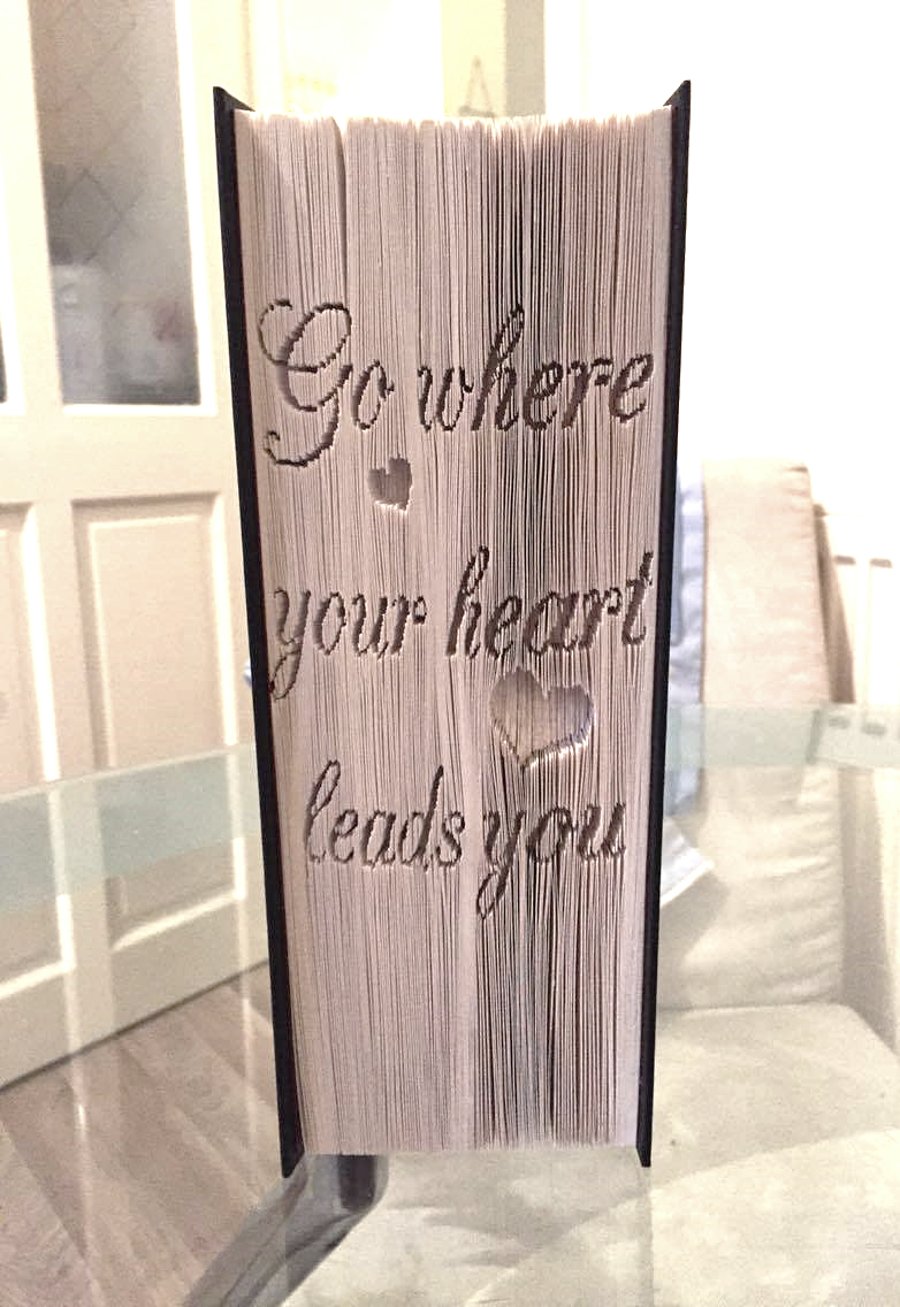 Go where
your heart
leads you